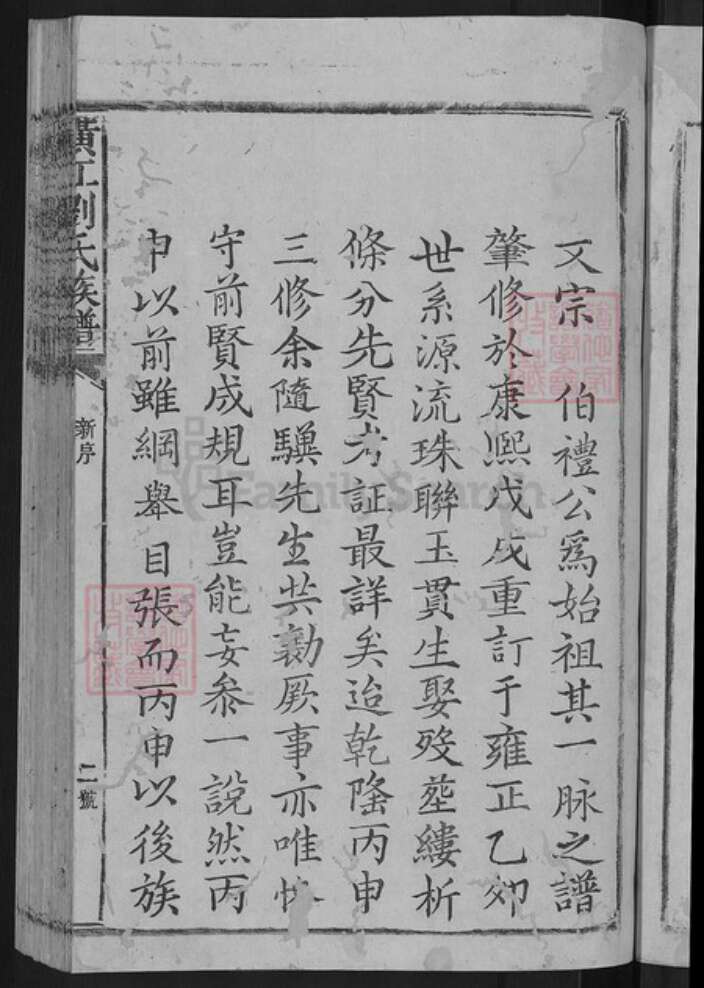 文宗 伯禮公爲始祖其一脉之譜
肇修於康熙戊戌重訂于雍正乙卯
世系源流珠聯玉貫生娶歿塟縷析
條分先賢考証最詳矣迨乾隆丙申
三修余隨驥先生共勷厥事亦唯恪
守前賢成規耳豈能妄叅一說然丙
申以前雖綱舉目張而丙申以後族
橫江劉氏族譜
新序
二號
FamilySearch